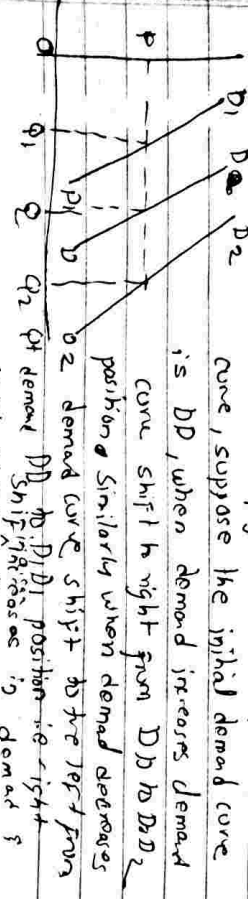 curve, suppose the initial demand curve
is DD, when demand increases demand
curve shift to right from DD to D2D2
position. Similarly when demad decreases
demand curve shift to the left from
demand DD to D1D1 position i.e right
shifting increases in demad &
P
D1
D
D2
D1
D
D2
O
Q1
Q
Q2